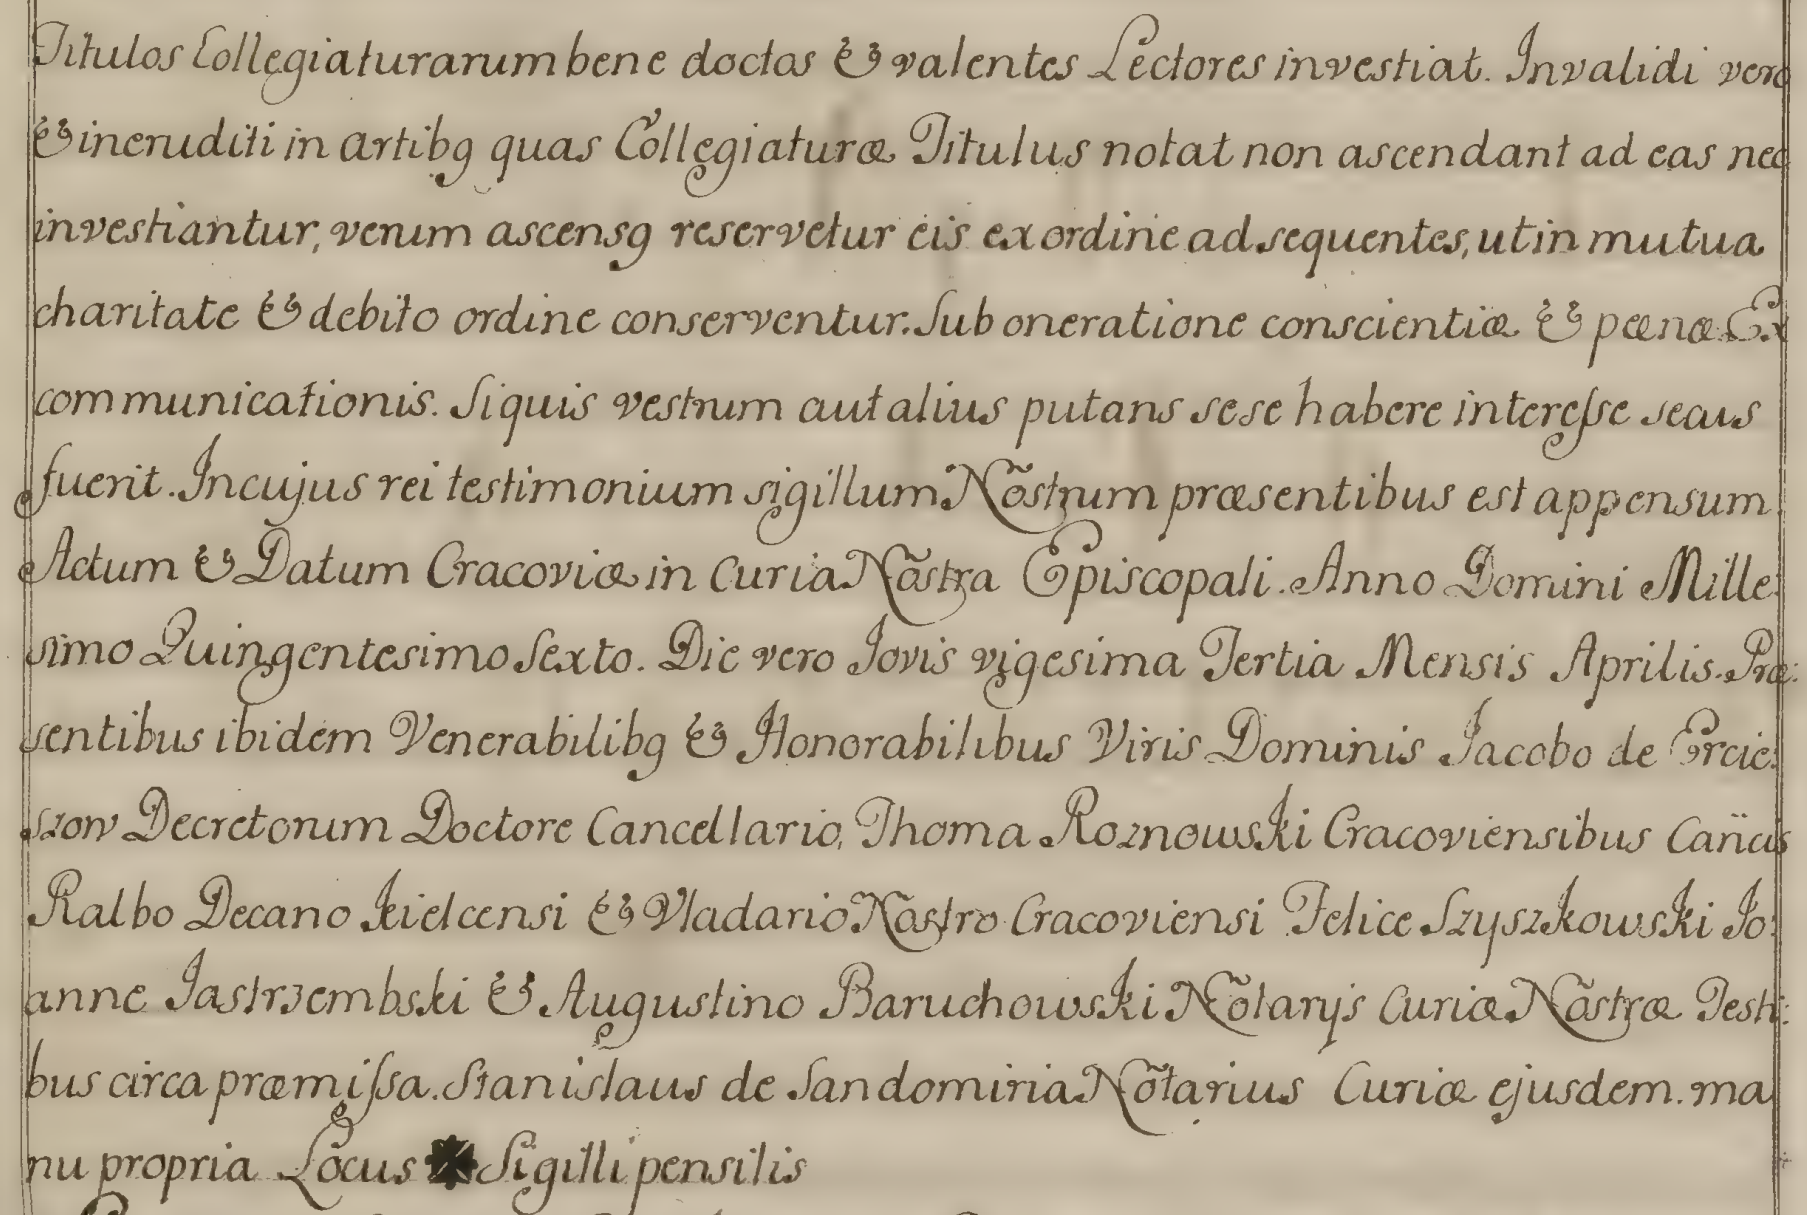 Titulos Collegiaturarum bene doctos & valentes Lectores investiat. Invalidi vero
& ineruditi in artibꝫ quas Collegiaturæ Titulus notat non ascendant ad eas nec
investiantur, verum ascensꝫ reservetur eis ex ordine ad sequentes, ut in mutua
charitate & debito ordine conserventur. Sub oneratione conscientiæ & pœnæ Ex
communicationis. Siquis vestrum aut alius putans sese habere interesse secus
fuerit. In cujus rei testimonium sigillum Nostrum præsentibus est appensum
Actum & Datum Cracoviæ in Curia Nostra Episcopali. Anno Domini Mille:
simo Quingentesimo Sexto. Die vero Jovis vigesima Tertia Mensis Aprilis. Præ:
sentibus ibidem Venerabilibꝫ & Honorabilibus Viris Dominis Jacobo de Ercie:
szow Decretorum Doctore Cancellario, Thoma Roznowski Cracoviensibus Cañcis
Ralbo Decano Kielcensi & Vladario Nostro Cracoviensi Felice Szyszkowski Jo:
anne Jastrzembski & Augustino Baruchowski Notarijs Curiæ Nostræ Testi:
bus circa præmissa. Stanislaus de Sandomiria Notarius Curiæ ejusdem. ma
nu propria Locus Sigilli pensilis